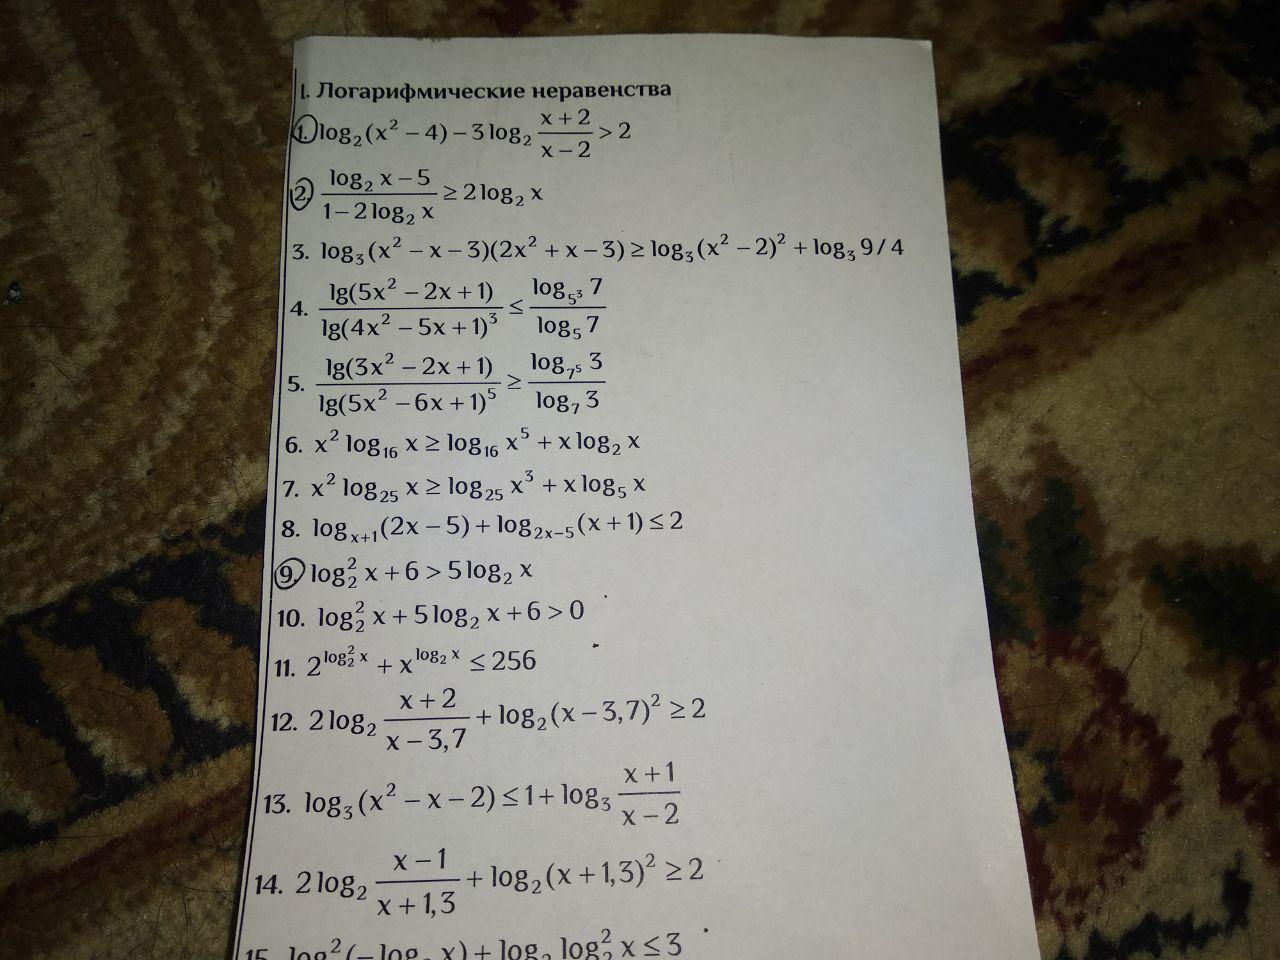 I. Логарифмические неравенства
1. log₂(x² − 4) − 3 log₂ (x + 2)/(x − 2) > 2
2. (log₂ x − 5)/(1 − 2 log₂ x) ≥ 2 log₂ x
3. log₃(x² − x − 3)(2x² + x − 3) ≥ log₃(x² − 2)² + log₃ 9/4
4. lg(5x² − 2x + 1)/lg(4x² − 5x + 1)³ ≤ log_{5³} 7/log₅ 7
5. lg(3x² − 2x + 1)/lg(5x² − 6x + 1)⁵ ≥ log_{7⁵} 3/log₇ 3
6. x² log₁₆ x ≥ log₁₆ x⁵ + x log₂ x
7. x² log₂₅ x ≥ log₂₅ x³ + x log₅ x
8. log_{x+1}(2x − 5) + log_{2x−5}(x + 1) ≤ 2
9. log₂² x + 6 > 5 log₂ x
10. log₂² x + 5 log₂ x + 6 > 0
11. 2^{log₂² x} + x^{log₂ x} ≤ 256
12. 2 log₂ (x + 2)/(x − 3,7) + log₂(x − 3,7)² ≥ 2
13. log₃(x² − x − 2) ≤ 1 + log₃ (x + 1)/(x − 2)
14. 2 log₂ (x − 1)/(x + 1,3) + log₂(x + 1,3)² ≥ 2
15. log²(− log x) + log log₂² x ≤ 3